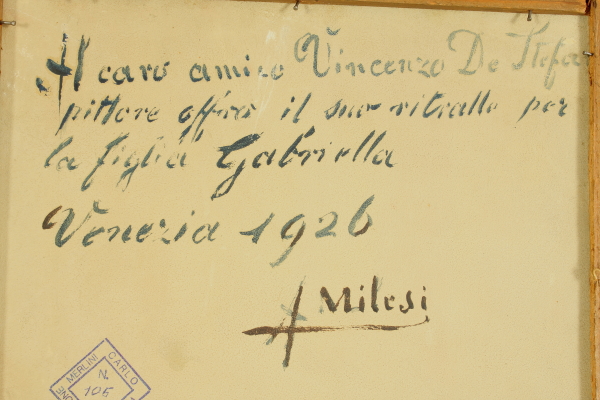 Al caro amico Vincenzo De Stefa
pittore offro il suo ritratto per
la figlia Gabriella
Venezia 1926
A Milesi
MERLINI CARLO
N.
105